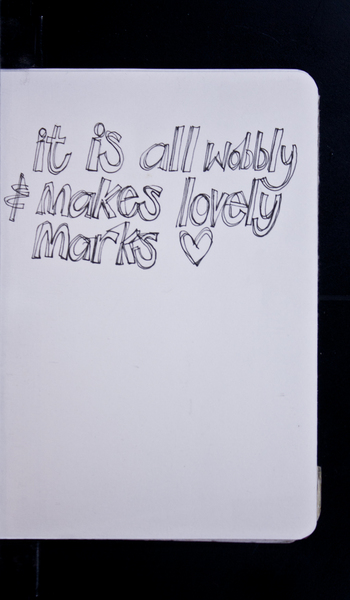 it is all wobbly
& makes lovely
marks ♡